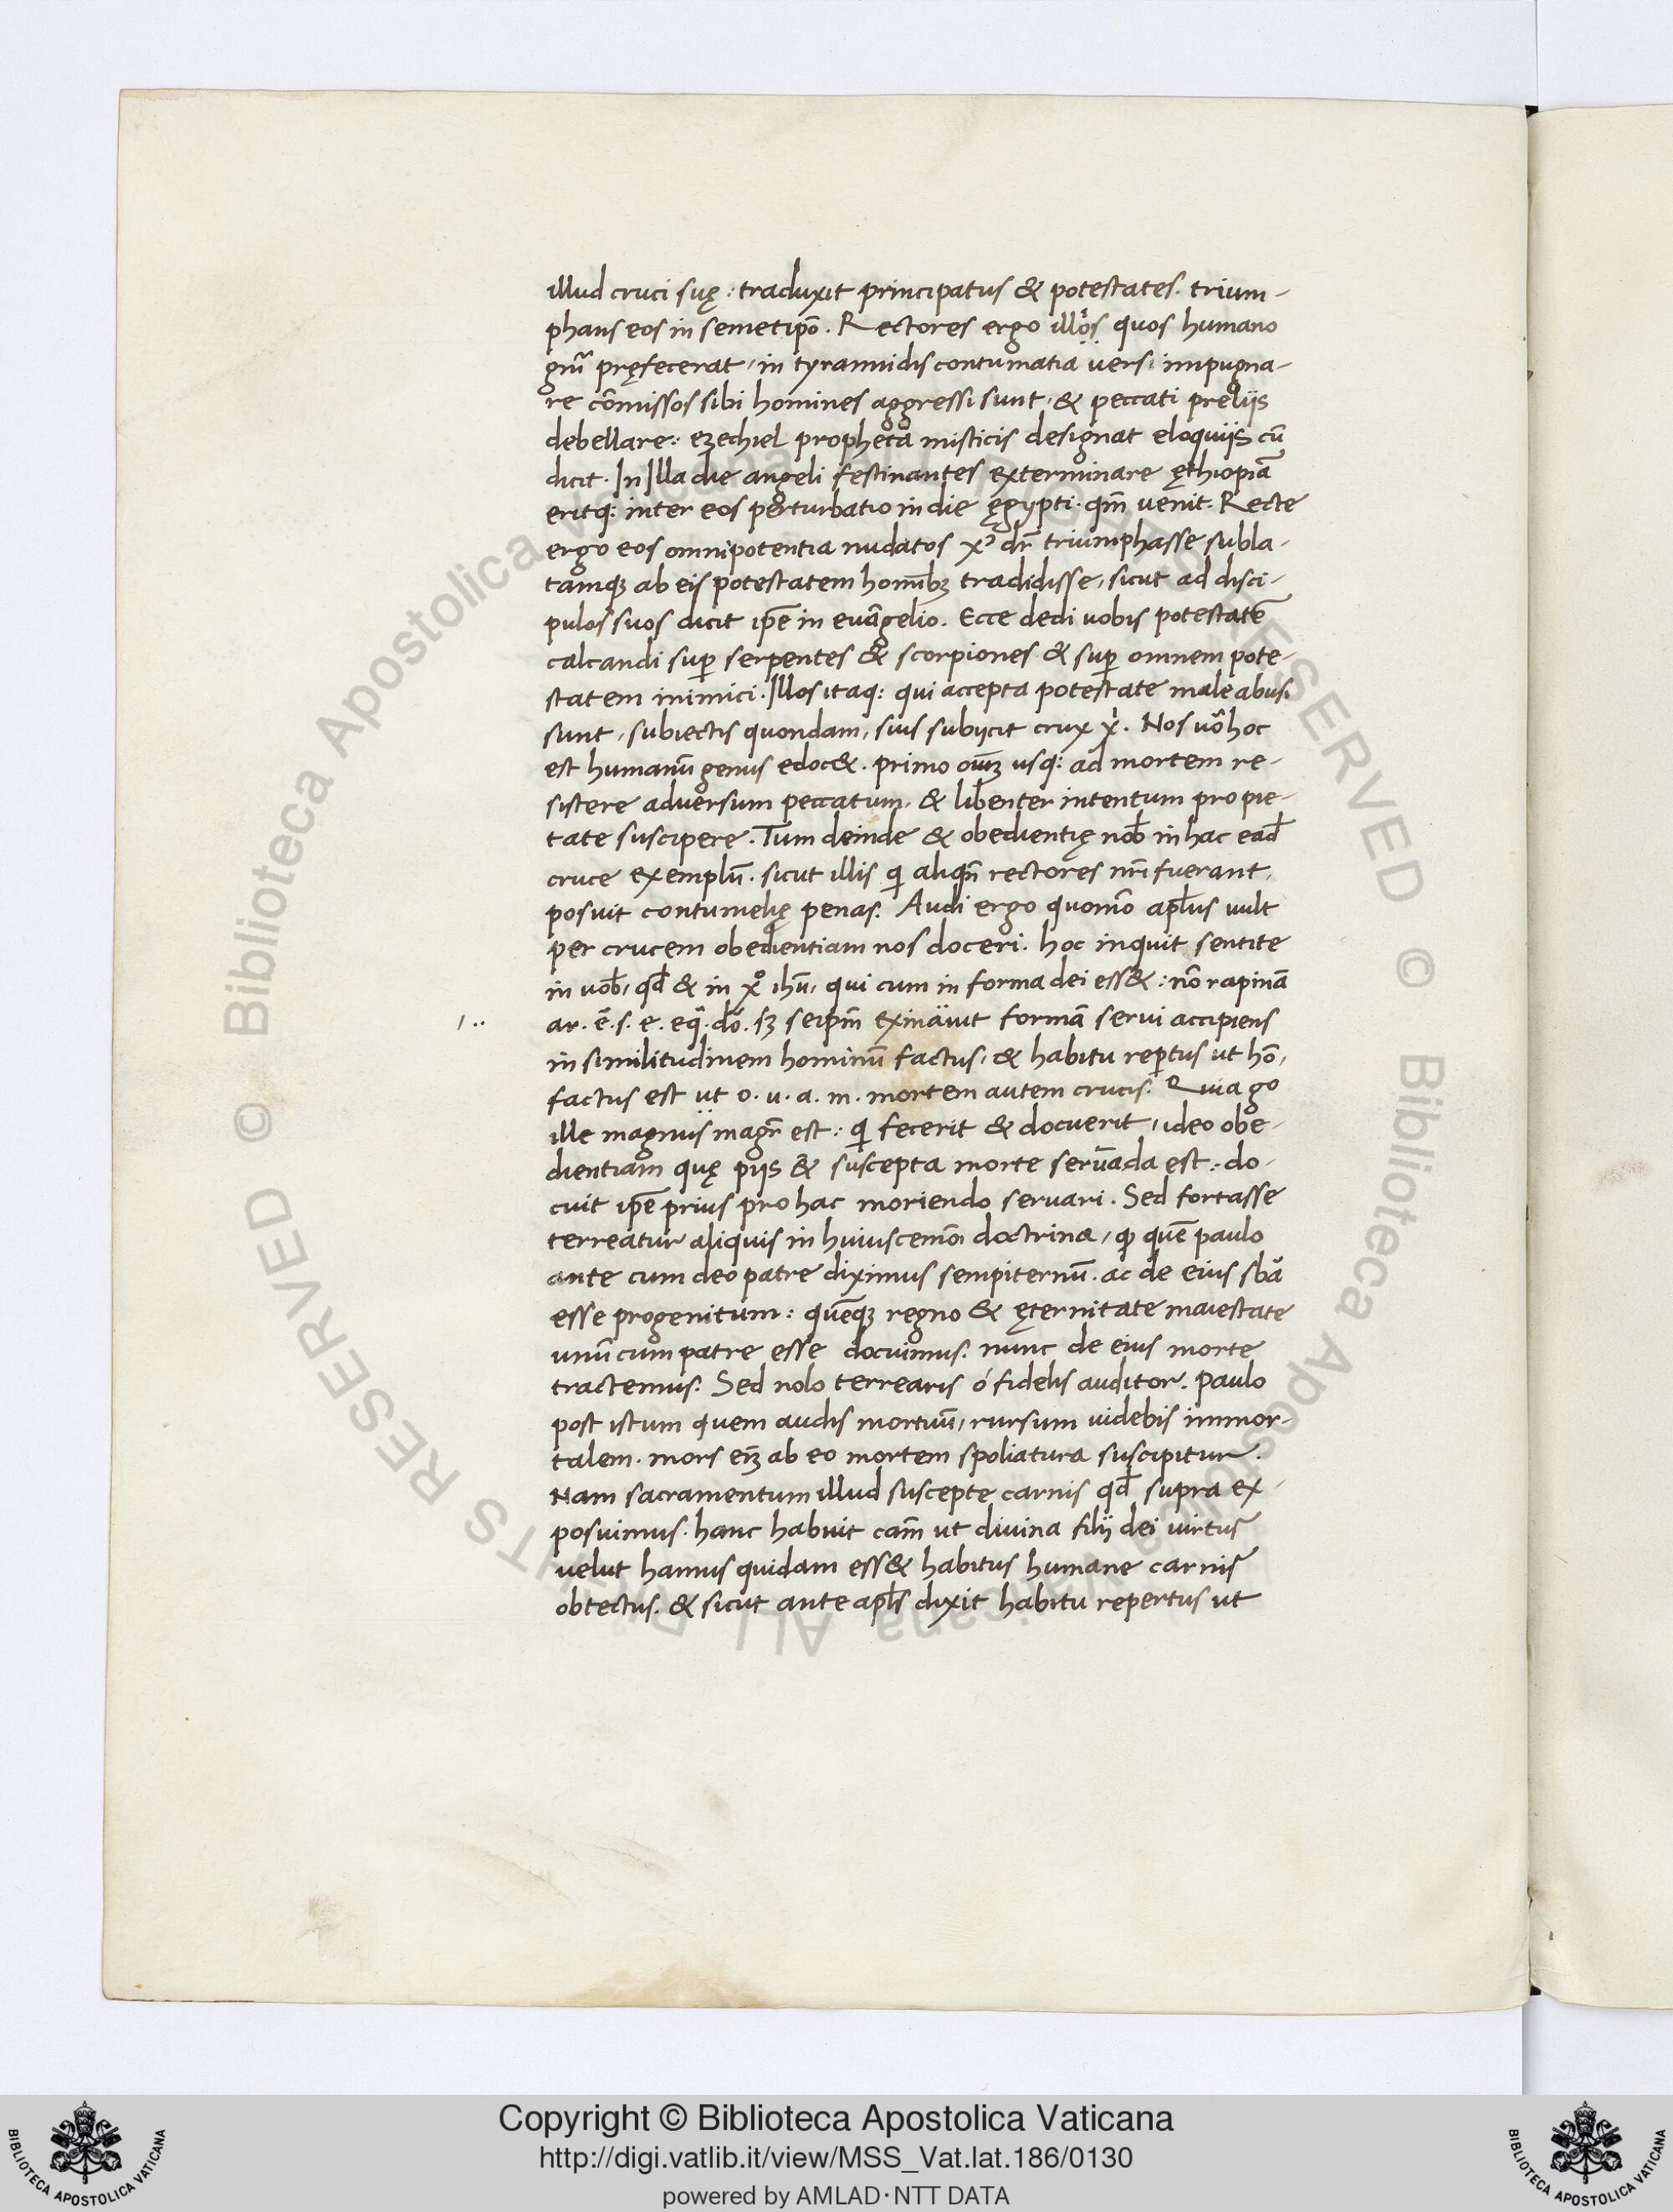 illud cruci suę : traduxit principatus & potestates. trium-
phans eos in semetip̄o. Rectores ergo illos quos humano
gn̄i pręfecerat, in tyrannidis contumatia versi impugna-
re cōmissos sibi homines aggressi sunt, & peccati preliis
debellare : ezechiel propheta misticis designat eloquiis cū
dicit. In Illa die angeli festinantes exterminare ęthiopiā
eritq: inter eos perturbatio in die ęgypti. qm̄ venit. Recte
ergo eos omnipotentia nudatos xꝰ dr̄ triumphasse subla-
tamqꝫ ab eis potestatem homībꝫ tradidisse, sicut ad disci-
pulos suos dicit ip̄e in evāgelio. Ecce dedi uobis potestatē
calcandi sup̄ serpentes & scorpiones & sup̄ omnem pote-
statem inimici. Illos itaq: qui accepta potestate male abusi
sunt, subiectis quondam, suis subiicit crux xi̇. Nos uo̊ hoc
est humanū genus edoc&. primo om̄ıꝫ usq: ad mortem re-
sistere adversum peccatum, & libenter intentum pro pie-
tate suscipere. Tum deinde & obedientię nob̄ in hac ead̄
cruce exemplū. sicut illis q̇ aliqn̄ rectores nr̄i fuerant,
posuit contumelię penas. Audi ergo quomō apl̄us uult
per crucem obedientiam nos doceri. hoc inquit sentite
in uob̄, qd̄ & in xo̊ ihū, qui cum in forma dei ess& : nō rapinā
ar. ē. s. e. eq̄. dō. sꝫ seipm̄ exinaīuit formā servi accipiens
in similitudinem hominū factus, & habitu rep̄tus ut hō,
factus est ut o. u. a. m. mortem autem crucis. Quia go
ille magnus magr̄ est : q̇ fecerit & docuerit, ideo obe-
dientiam quę piis & suscepta morte serūada est : do-
cuit ip̄e prius pro hac moriendo servari. Sed fortasse
terreatur aliquis in huiuscemōi doctrina, qꝫ quē paulo
ante cum deo patre diximus sempiternū. ac de eius sbā
esse progenitum : quēqꝫ regno & ęternitate maiestate
unū cum patre esse docuimus. nunc de eius morte
tractemus. Sed nolo terrearis ó fidelis auditor. Paulo
post istum quem audis mortuū, rursum uidebis immor-
talem. mors em̄ ab eo mortem spoliatura suscipitur.
Nam sacramentum illud suscepte carnis qd̄ supra ex-
posuimus. hanc habuit cam̄ ut divina filii dei uirtus
velut hamus quidam ess& habitus humane carnis
obtectus. & sicut ante apl̄s dixit habitu repertus ut
Copyright © Biblioteca Apostolica Vaticana
http://digi.vatlib.it/view/MSS_Vat.lat.186/0130
powered by AMLAD·NTT DATA